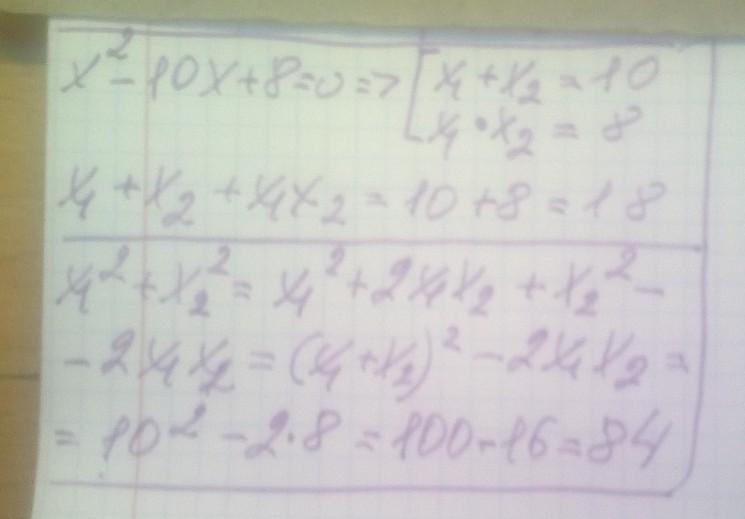 x²-10x+8=0=>[x₁+x₂=10
x₁·x₂=8
x₁+x₂+x₁x₂=10+8=18
x₁²+x₂²=x₁²+2x₁x₂+x₂²-
-2x₁x₂=(x₁+x₂)²-2x₁x₂=
=10²-2·8=100-16=84